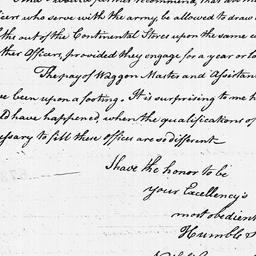 icers who serve with the army, be allowed to draw
the out of the Continental Stores upon the same
ther Officers, provided they engage for a year or lo
The pay of Waggon Master and Assistan
ve been upon a footing. It is surprising to me h
ld have happened, when the qualifications of
essary to fill these offices are so different
I have the honor to be
your Excellency's
most obedient
Humble